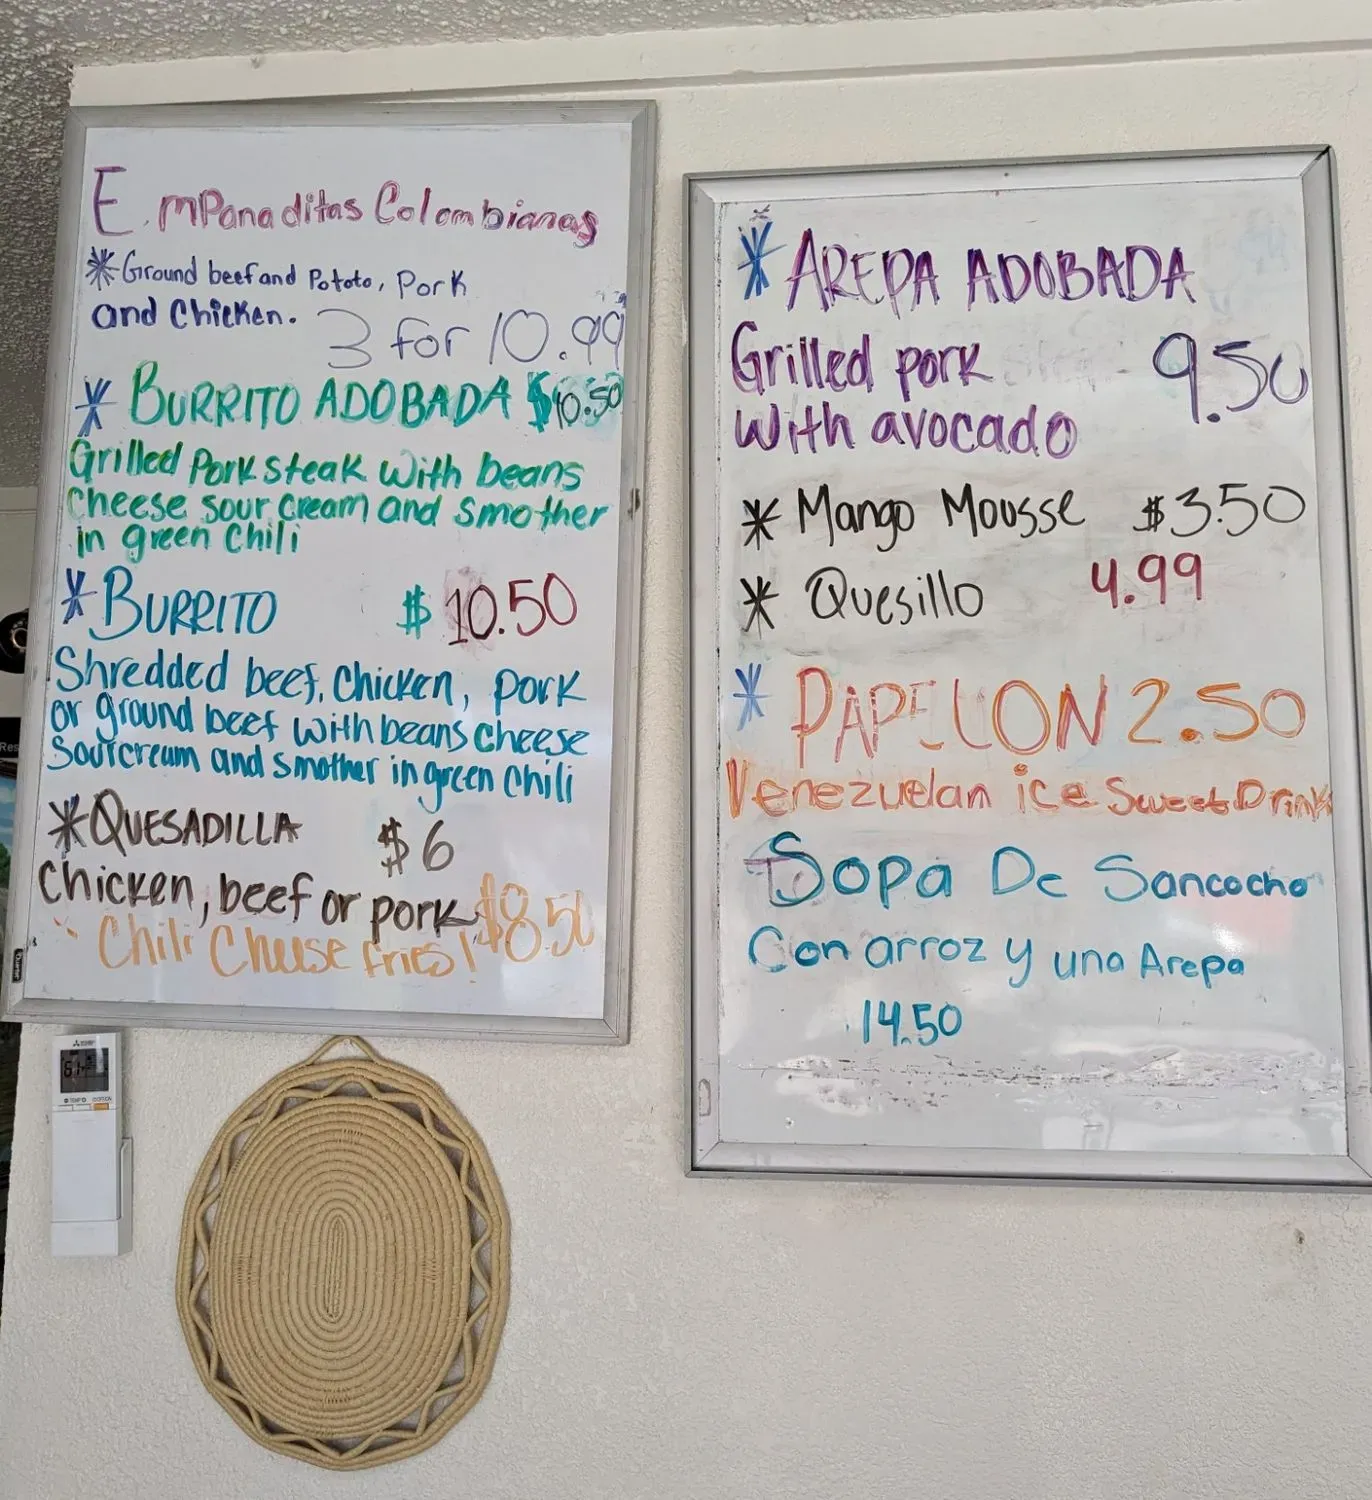 EmPanaditas Colombianas
*Ground beef and Pototo, Pork
and Chicken.
3 for 10.99
* BURRITO ADOBADA $10.50
Grilled Pork steak with beans
cheese sour cream and smother
in green chili
* BURRITO $10.50
Shredded beef, chicken, pork
or ground beef with beans cheese
Sourcream and smother in green chili
*QUESADILLA $6
Chicken, beef or pork
Chili Cheese fries! $8.50
* AREPA ADOBADA
Grilled pork 9.50
with avocado
* Mango Mousse $3.50
* Quesillo 4.99
* PAPELON 2.50
Venezuelan ice Sweet Drink
Sopa De Sancocho
Con arroz y una Arepa
14.50